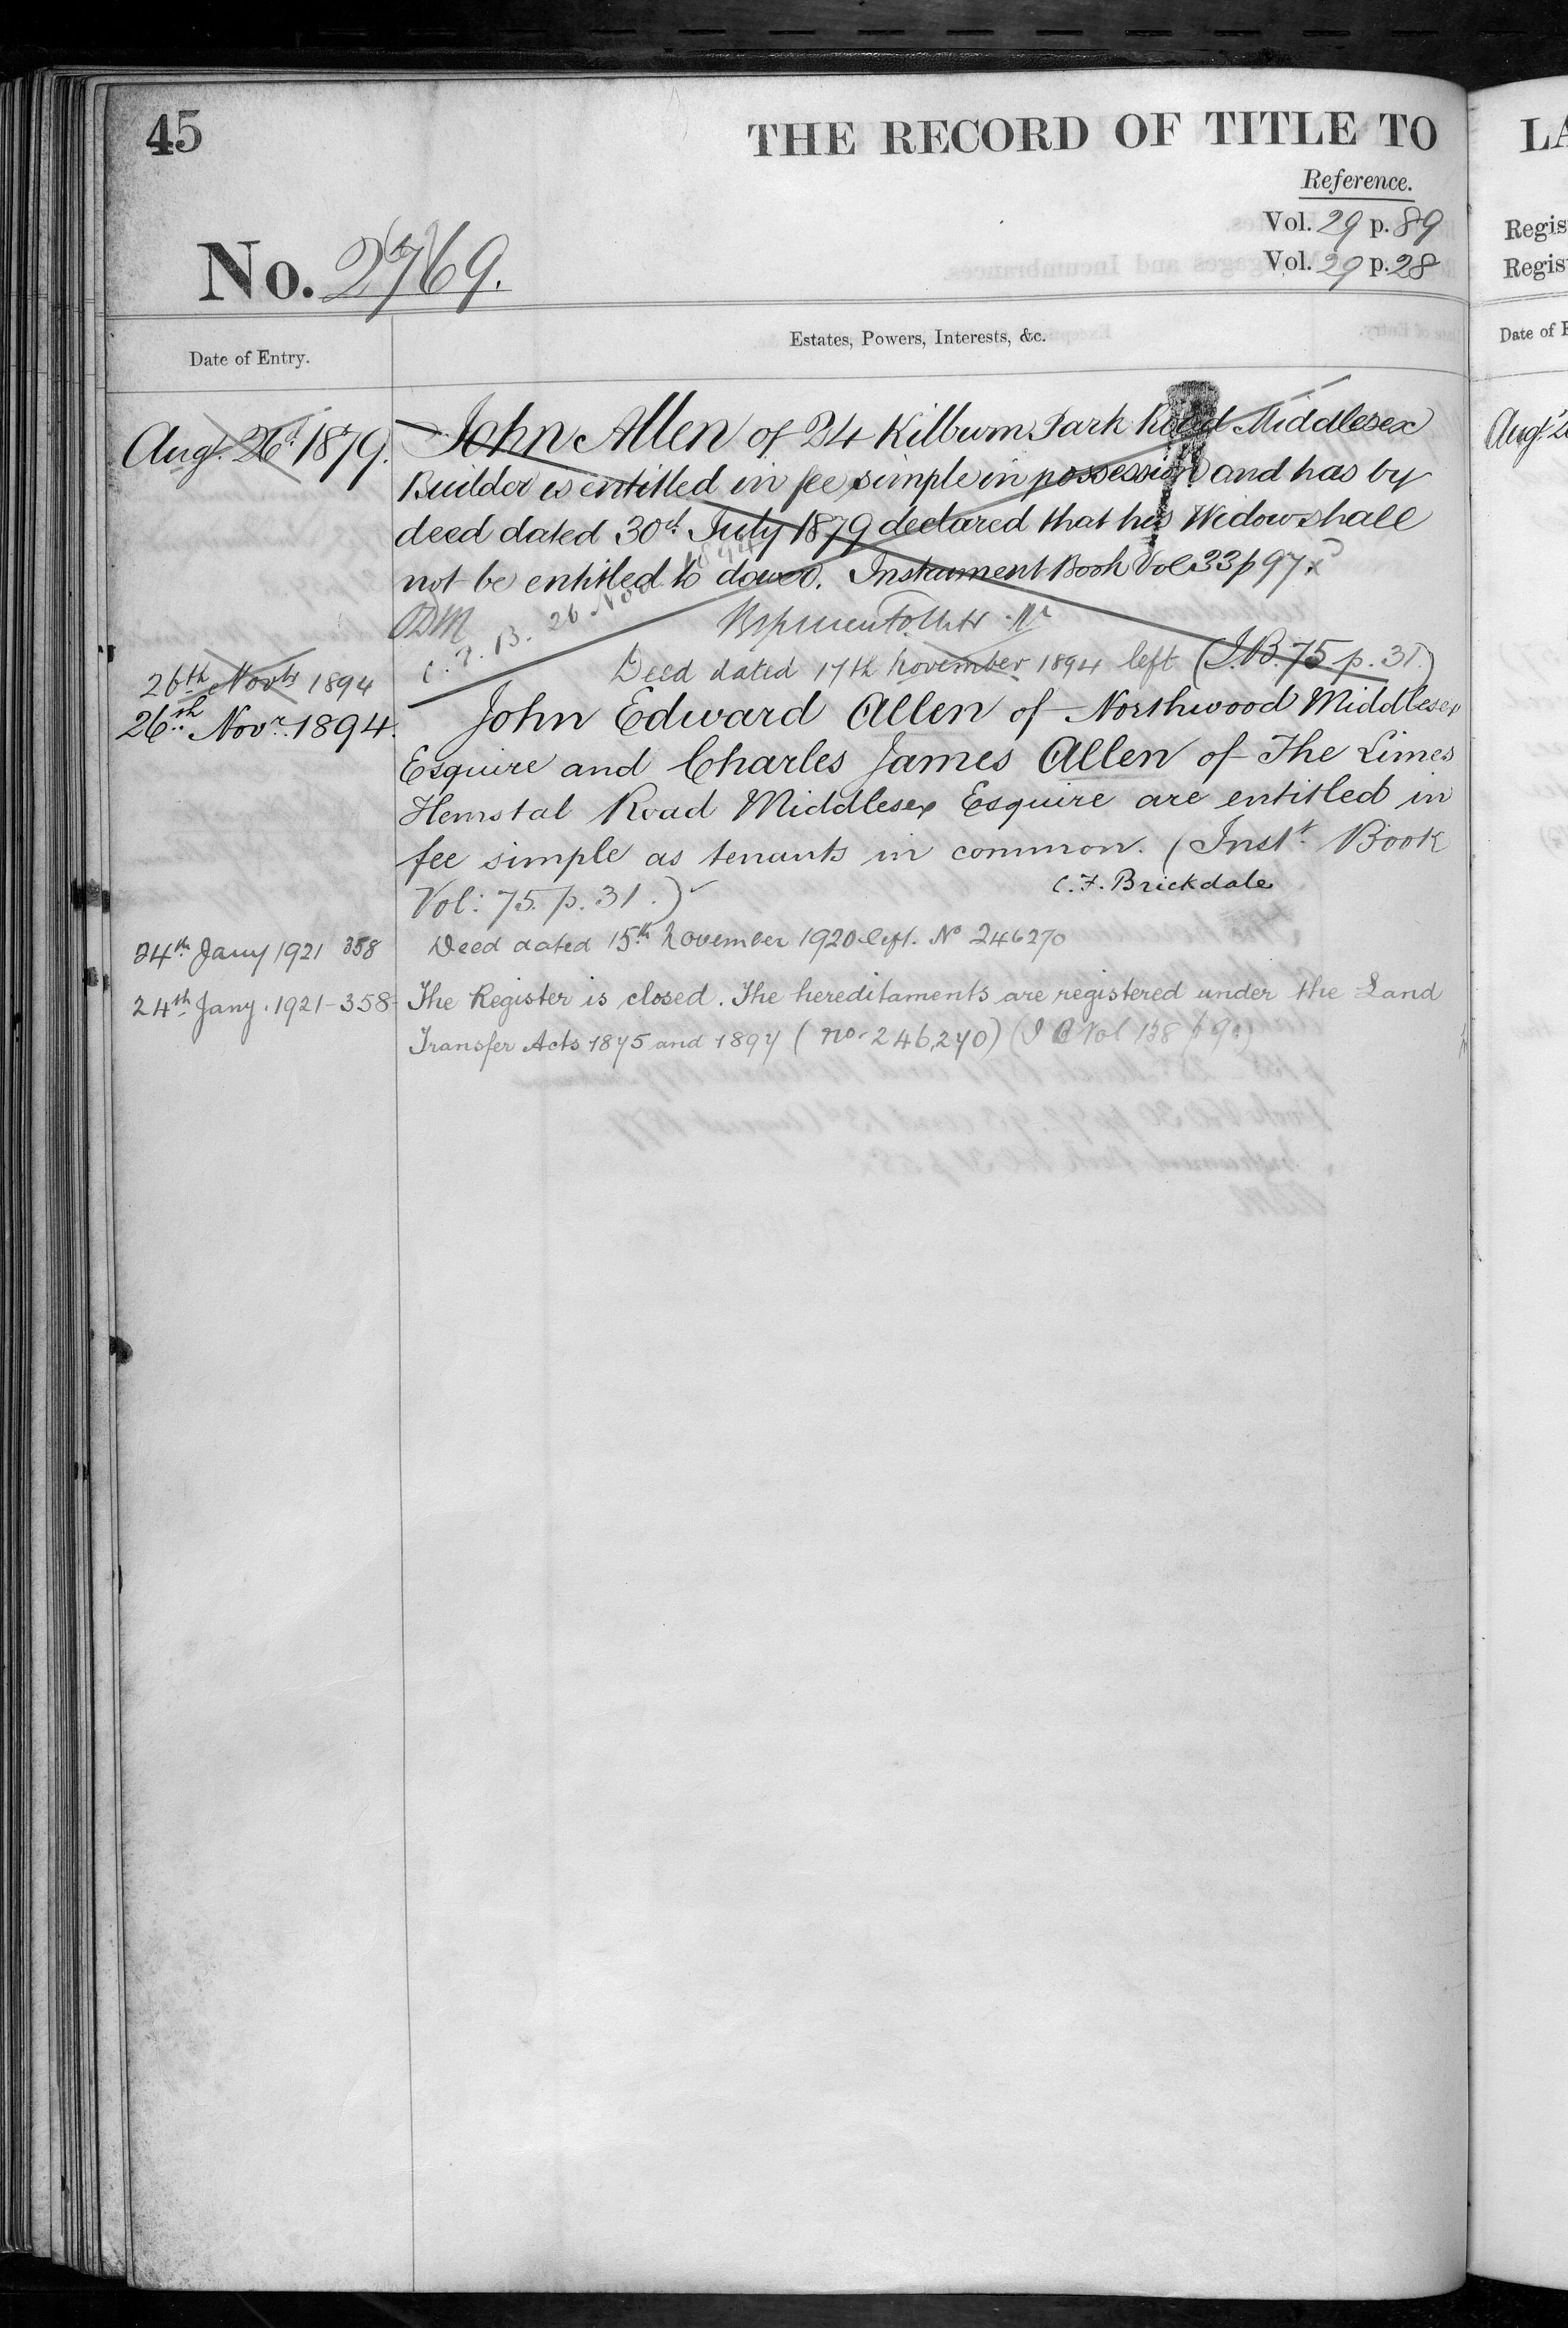 45
THE RECORD OF TITLE TO
Reference.
Vol. 29 p. 89
Vol. 29 p. 28
No. 2769.
Date of Entry.
Estates, Powers, Interests, &c.
Aug. 26th 1879. John Allen of 24 Kilburn Park Road Middlesex
Builder is entitled in fee simple in possession and has by
deed dated 30th July 1879 declared that his Widow shall
not be entitled to dower. Instrument Book Vol 33 p 97.
ODM
C. F. B. 26 Nov 1894
26th Novr 1894 Deed dated 17th November 1894 left (I.B. 75 p. 31.)
26th Novr. 1894. John Edward Allen of Northwood Middlesex
Esquire and Charles James Allen of The Limes
Hemstal Road Middlesex Esquire are entitled in
fee simple as tenants in common. (Instt. Book
Vol: 75. p. 31.)
C. F. Brickdale
24th Jany 1921 358 Deed dated 15th November 1920 left. No 246270
24th Jany. 1921-358- The Register is closed. The hereditaments are registered under the Land
Transfer Acts 1875 and 1897 (no. 246,270) (I B Vol 138 p 9
LA
Regis
Regis
Date of E
Aug. 2